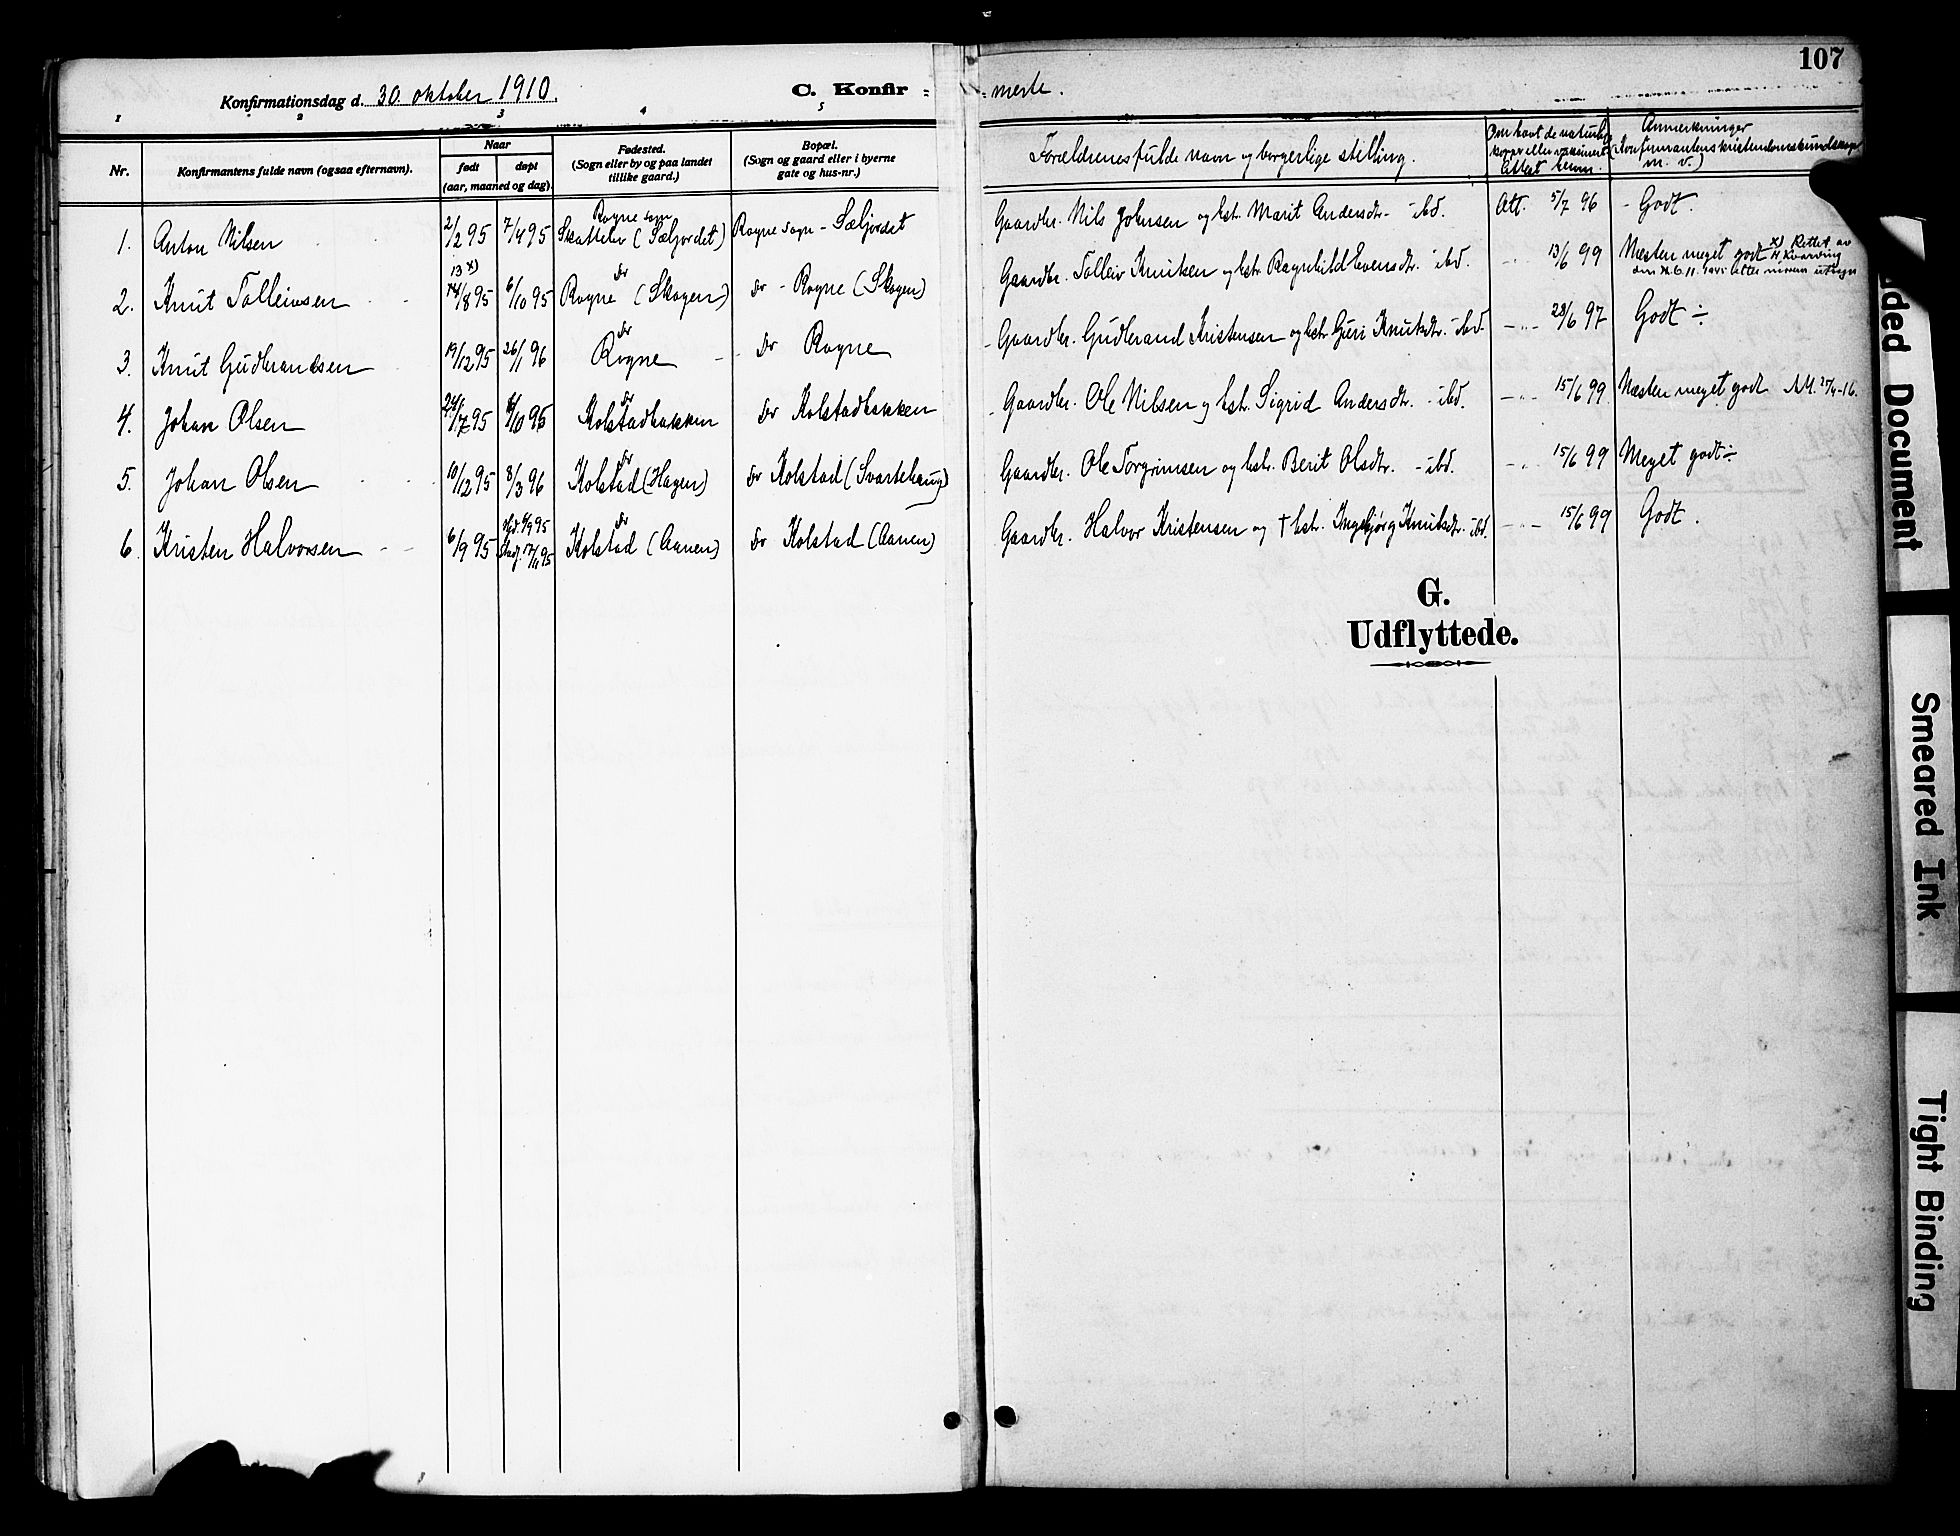 107
Konfirmationsdag d. 30. oktober 1910.
C. Konfir = = merte.
1 2 3 4 5
Nr.
Konfirmantens fulde navn (ogsaa efternavn).
Naar
født døpt
(aar, maaned og dag).
Fødested.
(Sogn eller by og paa landet
tillike gaard.)
Bopæl.
(Sogn og gaard eller i byerne
gate og hus-nr.)
Forældrenes fulde navn og borgerlige stilling.
Om havt de naturlige
kopper eller vaksineret
Attest
Anmerkninger
(Konfirmantens kristendomskundskap
m. v.)
1. Anton Nilsen 2/2 95 7/4 95 Rogne sogn Skattebu (Sæljordet) Rogne sogn - Sæljordet Gaardbr. Nils Johnsen og hstr. Marit Andersdtr. - ibd. Att. 5/7 96 - Godt.
2. Knut Tolleivsen 13 x) 14/8 95 6/10 95 do Rogne (Skogen) do - Rogne (Skogen) Gaardbr. Tolleiv Knutsen og hstr. Ragnhild Evensdtr. - ibd. - " - 13/6 99 Næsten meget godt x) Rettet av
3. Knut Gudbrandsen 19/12 95 26/1 96 do Rogne do Rogne Gaardbr. Gudbrand Kristensen og hstr. Guri Knutsdtr. - ibd. - " - 28/6 97 Godt ÷
4. Johan Olsen 7 95 10 95 do Kolstadbakken do Kolstadbakken Gaardbr. Ole Nilsen og hstr. Sigrid Andersdtr. - ibd. - " - 15/6 99 Næsten meget godt
5. Johan Olsen 10/12 95 8/3 96 do Kolstad (Hagen) do Kolstad (Svartehaug) Gaardbr. Ole Torgrimsen og hstr. Berit Olsdtr. - ibd. - " - 15/6 99 Meget godt ÷
6. Kristen Halvorsen 6/9 95 Hjd. 8/9 95 Stadf. 17/11 95 do Kolstad (Aanen) do Kolstad (Aanen) Gaardbr. Halvor Kristensen og † hstr. Ingebjørg Knutsdtr. - ibd. - " - 15/6 99 Godt.
G.
Udflyttede.
ded Document
Smeared Ink
Tight Binding